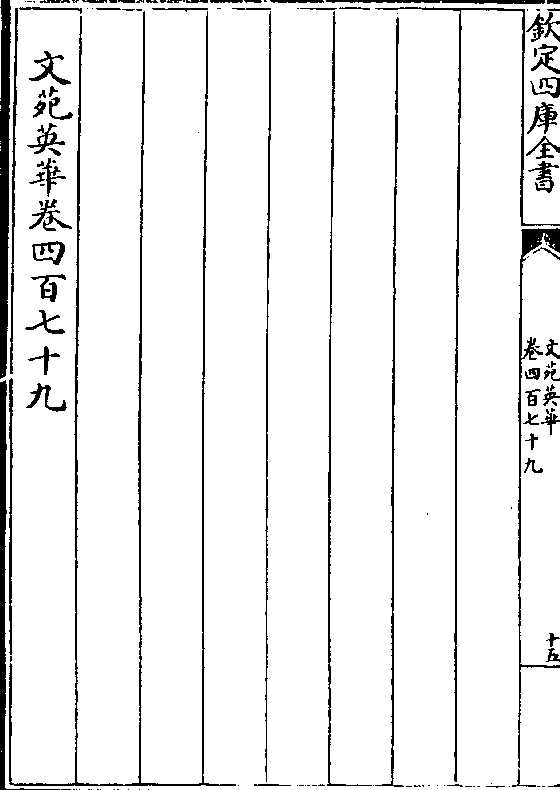 欽定四庫全書
文苑英華
卷四百七十九
十五
文苑英華卷四百七十九